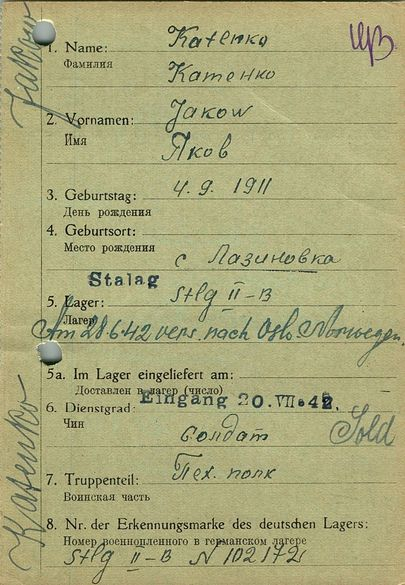 Jakow
ЦВ
Katenko
1. Name:
Фамилия
Катенко
2. Vornamen: Jakow
Имя
Яков
3. Geburtstag: 4. 9. 1911
День рождения
4. Geburtsort:
Место рождения
с Лазиновка
Stalag
5. Lager: Stlg II-B
Лагерь
Am 28.6.42 vers. nach Oslo Norwegen.
5a. Im Lager eingeliefert am:
Доставлен в лагер (число)
Eingang 20. VII. 42.
6. Dienstgrad:
Чин
солдат Sold
7. Truppenteil: Пех. полк
Воинская часть
Katenko
8. Nr. der Erkennungsmarke des deutschen Lagers:
Номер военнопленного в германском лагере
Stlg II-B N 102172